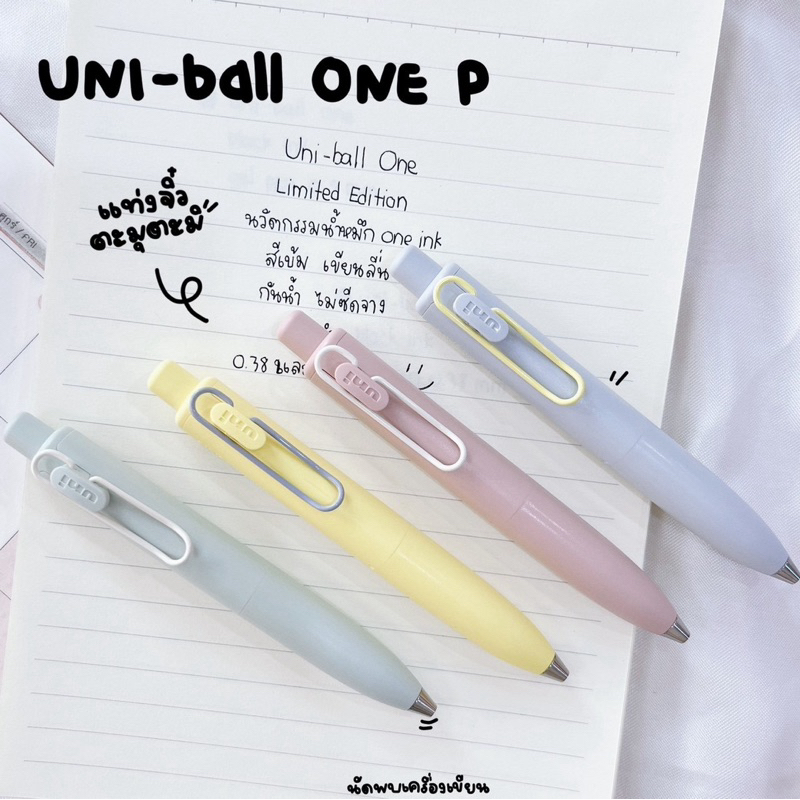 UNI-ball ONE P
Uni-ball One
Limited Edition
นวัตกรรมน้ำหมึก one ink
สีเข้ม เขียนลื่น
กันน้ำ ไม่ซีดจาง
0.38
แท่งจิ๋ว
ตะมุตะมิ
/FRI
uni
uni
uni
uni
นัดพบเครื่องเขียน